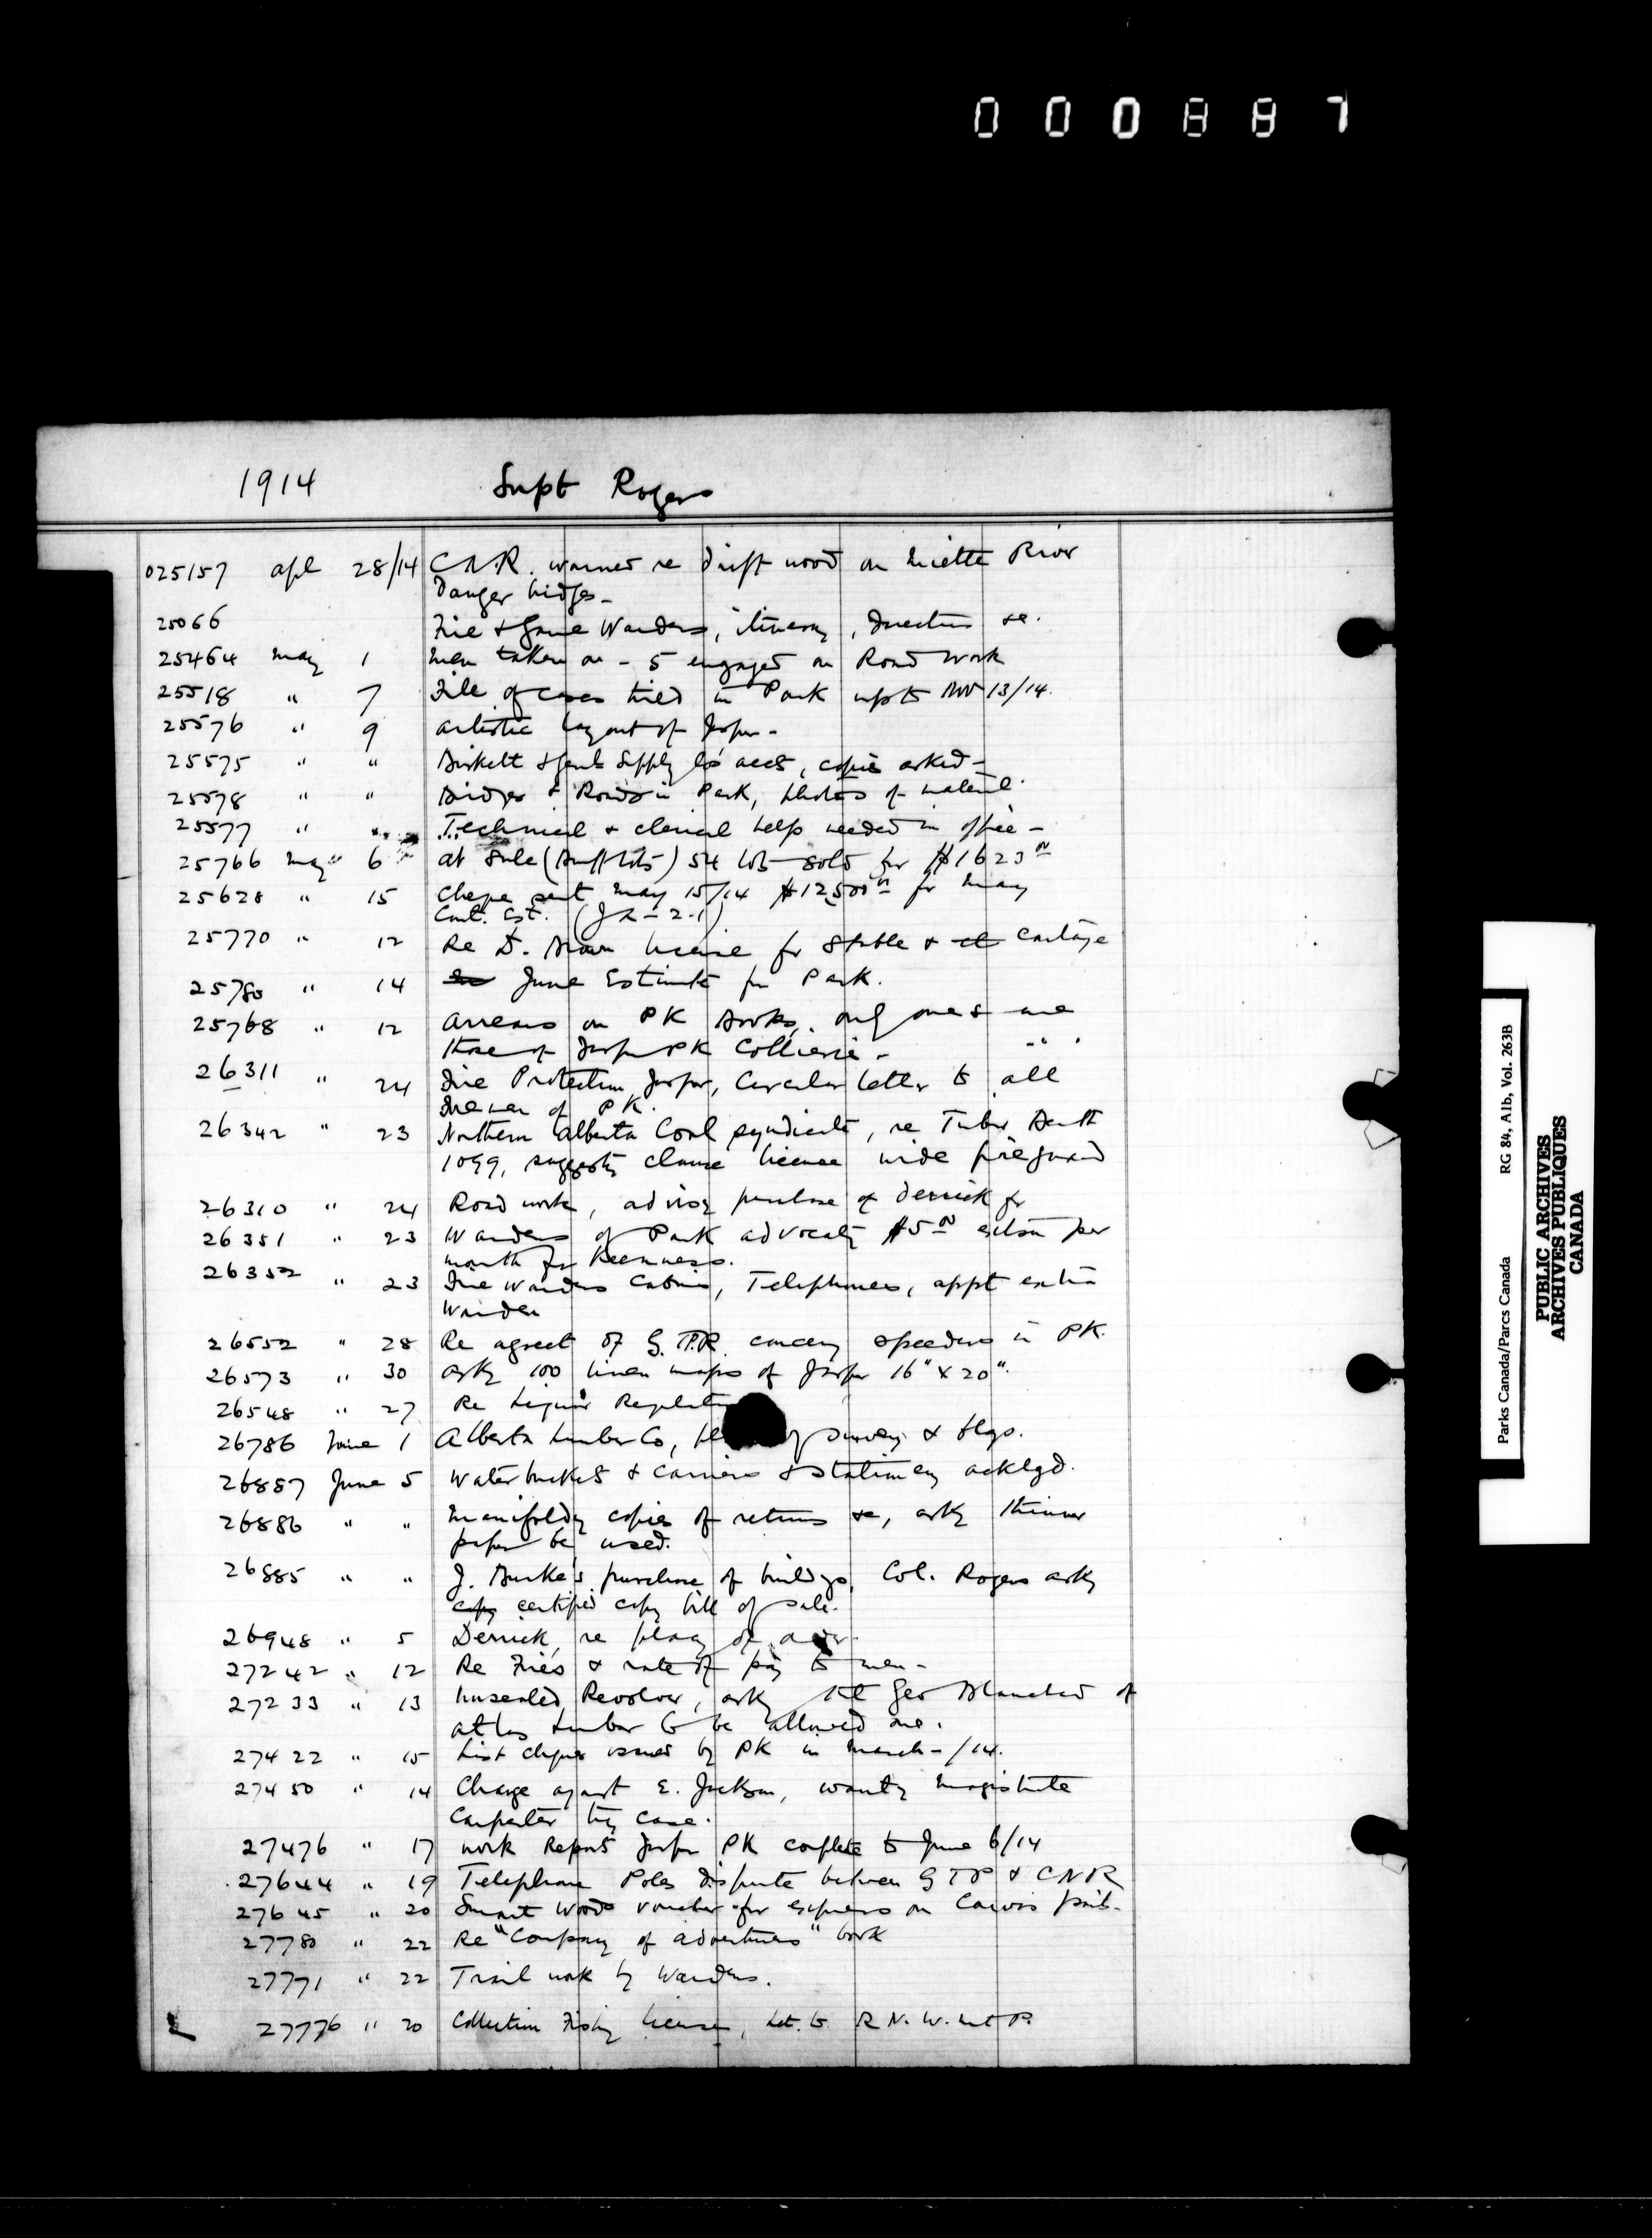 000887
1914 Supt Rogers
025157 Apl 28/14 C.N.R. warned re drift wood on Miette River
Danger bridges -
25066 Fire & Game Wardens, itinerary, Duties &c.
25464 May 1 Men taken on - 5 engaged on Road work
25518 " 7 File of cases tried in Park up to Nov 13/14.
25576 " 9 Artistic layout of Jasper -
25575 " " Birkett & Genl Supply Co's accts, copies asked -
25578 " " Bridges & Roads in Park, photos of material.
25577 " " Technical & clerical help needed in office -
25766 May 6 At Sale (Buff lots) 54 lots sold for $1623 00
25628 " 15 Cheque sent May 15/14 $12500 00 for May
Cont. Est. (J R - 2-1)
25770 " 12 Re D. license for Stable & Cartage
25780 " 14 June Estimate for Park.
25768 " 12 Arrears on PK Books, only ones are
those of Jasper PK Collieries -
26311 " 24 Fire Protection Jasper, Circular letter to all
of PK.
26342 " 23 Northern Alberta Coal Syndicate, re Timber Berth
1099, suggests clause license wide fireguard
26310 " 24 Road work, advisg purchase of derrick for
26351 " 23 Wardens of Park advocatg $5 00 extra per
month for keenness.
26352 " 23 Fire Wardens Cabins, Telephones, appt extra
Warden
26552 " 28 Re agreet of G.T.P.R. concerng speeders in PK.
26573 " 30 Askg 100 linen maps of Jasper 16" x 20".
26548 " 27 Re Liquor
26786 June 1 Alberta Lumber Co, survey & bldgs.
26887 June 5 Water buckets & carriers & stationery acklgd.
26886 " " Manifoldg copies of returns &c, askg thinner
paper be used.
26885 " " J. Burke's purchase of buildgs, Col. Rogers askg
copy certified copy bill of sale.
26948 " 5 Derrick, re
27242 " 12 Re Fires & rate of pay to men -
27233 " 13 Unsealed Revolver, askg tt Geo Blanchard of
Atlas Lumber Co be allowed one.
27422 " 15 List cheques issued by PK in March - /14.
27450 " 14 Charge agnst E. Jackson, wantg Magistrate
Carpenter try case.
27476 " 17 Work Reports Jasper PK complete to June 6/14
27644 " 19 Telephone Poles dispute between GTP & CNR
27645 " 20 Smart Woods voucher for express on Canvas pails.
27780 " 22 Re "Company of adventurers" book
27771 " 22 Trail work by Wardens.
27776 " 20 Collection Fishg licenses, let. to R.N.W.Mt P.
Parks Canada/Parcs Canada RG 84, A1b, Vol. 263B
PUBLIC ARCHIVES
ARCHIVES PUBLIQUES
CANADA